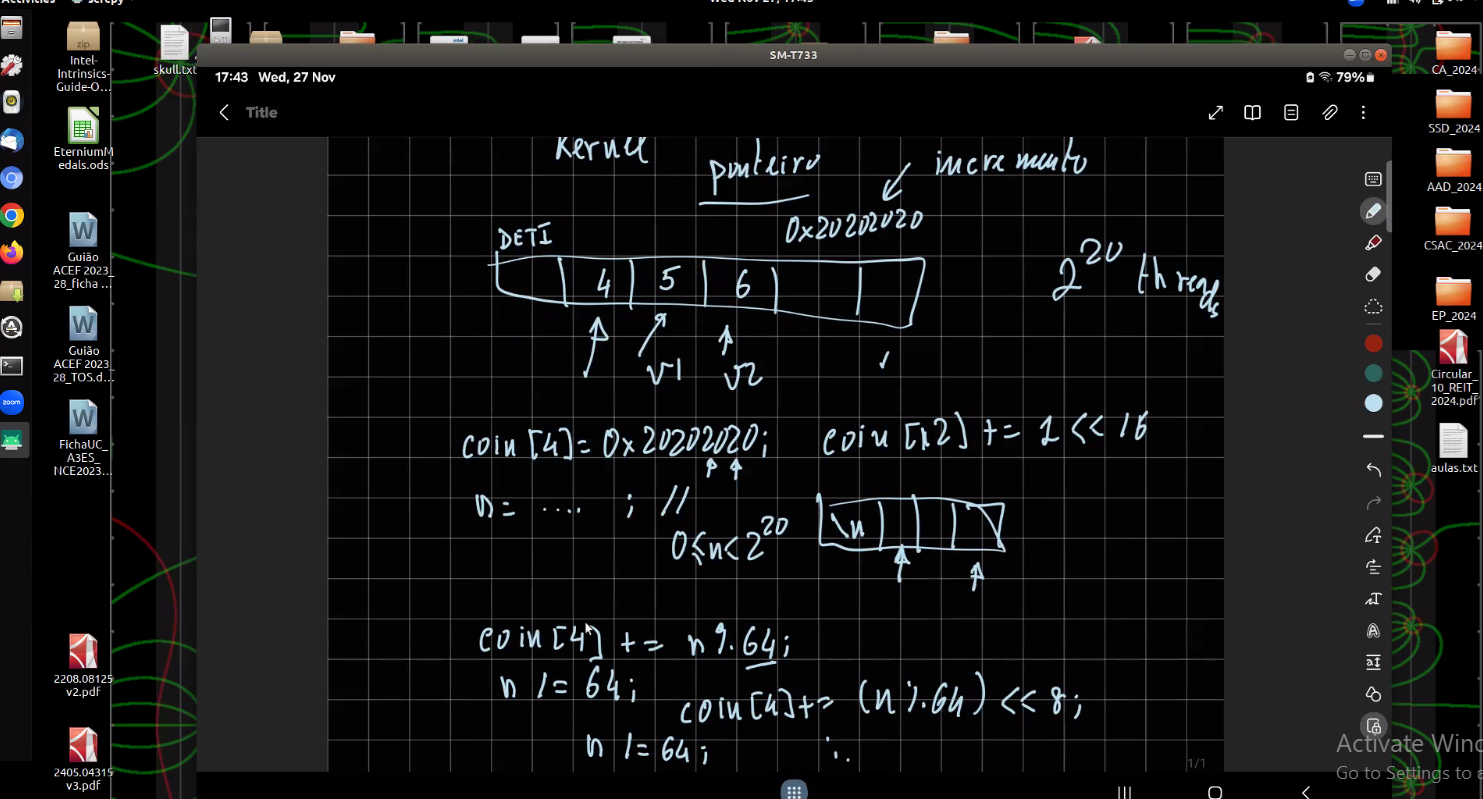 Activities
scrcpy
Wed Nov 27, 17:43
zip
Intel-
Intrinsics-
Guide-O...
skull.txt
EterniumM
edals.ods
Guião
ACEF 2023_
28_ficha ...
Guião
ACEF 2023_
28_TOS.d...
FichaUC_
A3ES_
NCE2023...
2208.08125
v2.pdf
2405.04315
v3.pdf
zoom
SM-T733
17:43 Wed, 27 Nov
79%
Title
Kernel
ponteiro
incremento
0x20202020
DETI
4 5 6
v1 v2
2^20 threads
coin [4] = 0x20202020;
coin [12] += 1 << 16
n = .... ; //
0 ≤ n < 2^20
\n
coin [4] += n % 64;
n /= 64;
coin [4] += (n % 64) << 8;
n /= 64;
1/1
CA_2024
SSD_2024
AAD_2024
CSAC_2024
EP_2024
Circular_
10_REIT_
2024.pdf
aulas.txt
Activate Wind
Go to Settings to a